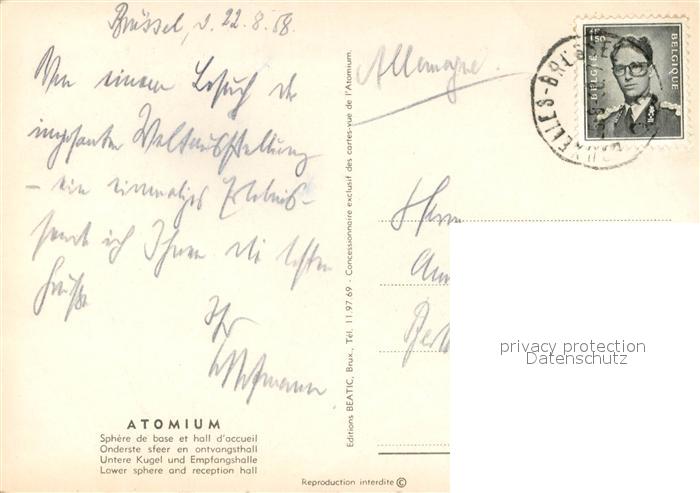 Brüssel, d. 22.8.58.
Von einem Besuch der
imposanten Weltausstellung
– ein einmaliges Erlebnis –
sende ich Ihnen die besten
Grüße
Ihr
Allemagne.
1F50
BELGIE BELGIQUE
Herrn
Editions BEATIC, Brux., Tél. 11.97.69 - Concessionnaire exclusif des cartes-vue de l'Atomium.
privacy protection
Datenschutz
ATOMIUM
Sphère de base et hall d'accueil
Onderste sfeer en ontvangsthall
Untere Kugel und Empfangshalle
Lower sphere and reception hall
Reproduction interdite ©